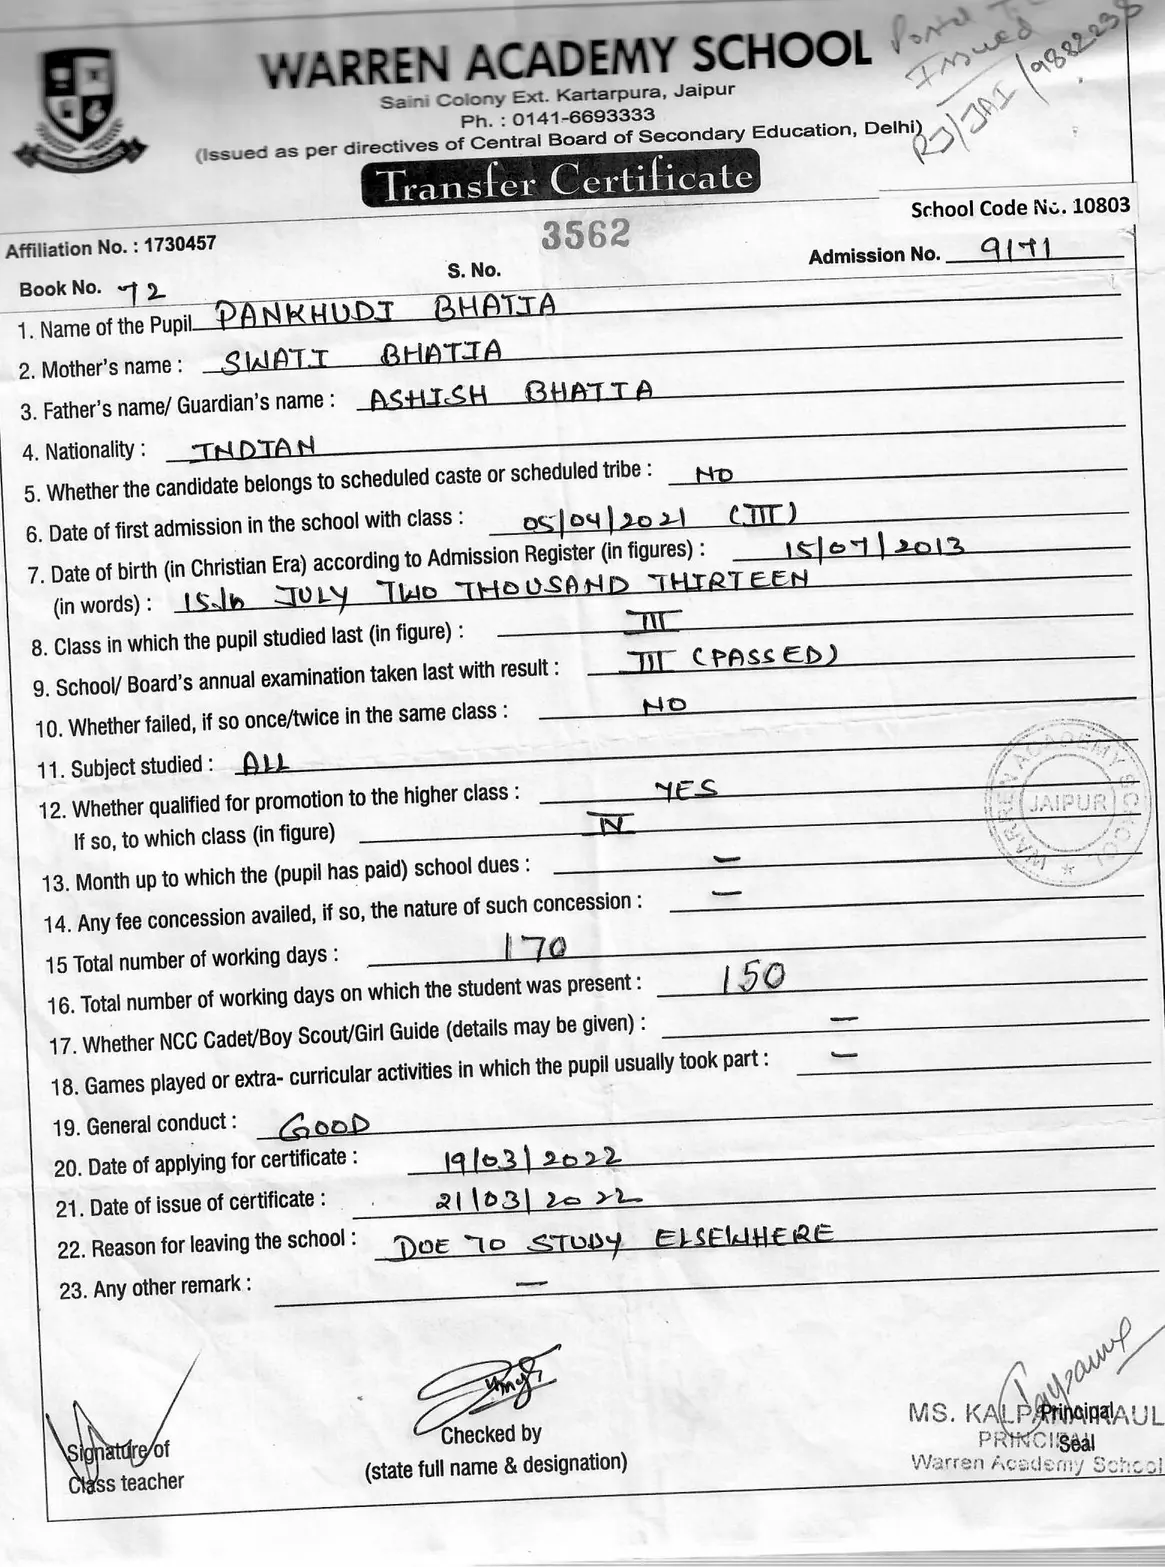 Portal
Issued
RJ/JAI/9882238
WARREN ACADEMY SCHOOL
Saini Colony Ext. Kartarpura, Jaipur
Ph. : 0141-6693333
(Issued as per directives of Central Board of Secondary Education, Delhi)
Transfer Certificate
School Code No. 10803
Affiliation No. : 1730457
3562
Admission No. 9171
Book No. 72
S. No.
1. Name of the Pupil PANKHUDI BHATIA
2. Mother's name : SWATI BHATIA
3. Father's name/ Guardian's name : ASHISH BHATIA
4. Nationality : INDIAN
5. Whether the candidate belongs to scheduled caste or scheduled tribe : NO
6. Date of first admission in the school with class : 05/04/2021 (III)
7. Date of birth (in Christian Era) according to Admission Register (in figures) : 15/07/2013
(in words) : 15th JULY TWO THOUSAND THIRTEEN
8. Class in which the pupil studied last (in figure) : III
9. School/ Board's annual examination taken last with result : III (PASSED)
10. Whether failed, if so once/twice in the same class : NO
11. Subject studied : ALL
12. Whether qualified for promotion to the higher class : YES
If so, to which class (in figure) IV
WARREN ACADEMY SCHOOL
JAIPUR
13. Month up to which the (pupil has paid) school dues : –
14. Any fee concession availed, if so, the nature of such concession : –
15 Total number of working days : 170
16. Total number of working days on which the student was present : 150
17. Whether NCC Cadet/Boy Scout/Girl Guide (details may be given) : –
18. Games played or extra- curricular activities in which the pupil usually took part : –
19. General conduct : GOOD
20. Date of applying for certificate : 19/03/2022
21. Date of issue of certificate : 21/03/2022
22. Reason for leaving the school : DUE TO STUDY ELSEWHERE
23. Any other remark : –
Signature of
Class teacher
Checked by
(state full name & designation)
Principal
Seal
MS. KALPANA KAUL
PRINCIPAL
Warren Academy School